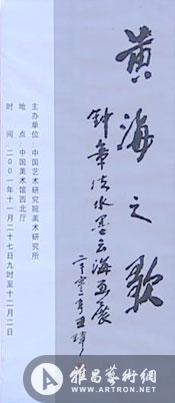 黄海之歌
钟章法水墨云海画展
主办单位:中国艺术研究院美术研究所
地 点:中国美术馆西北厅
时 间:二00一年十一月二十七日九时至十二月二日
雅昌藝術網
WWW.ARTRON.NET